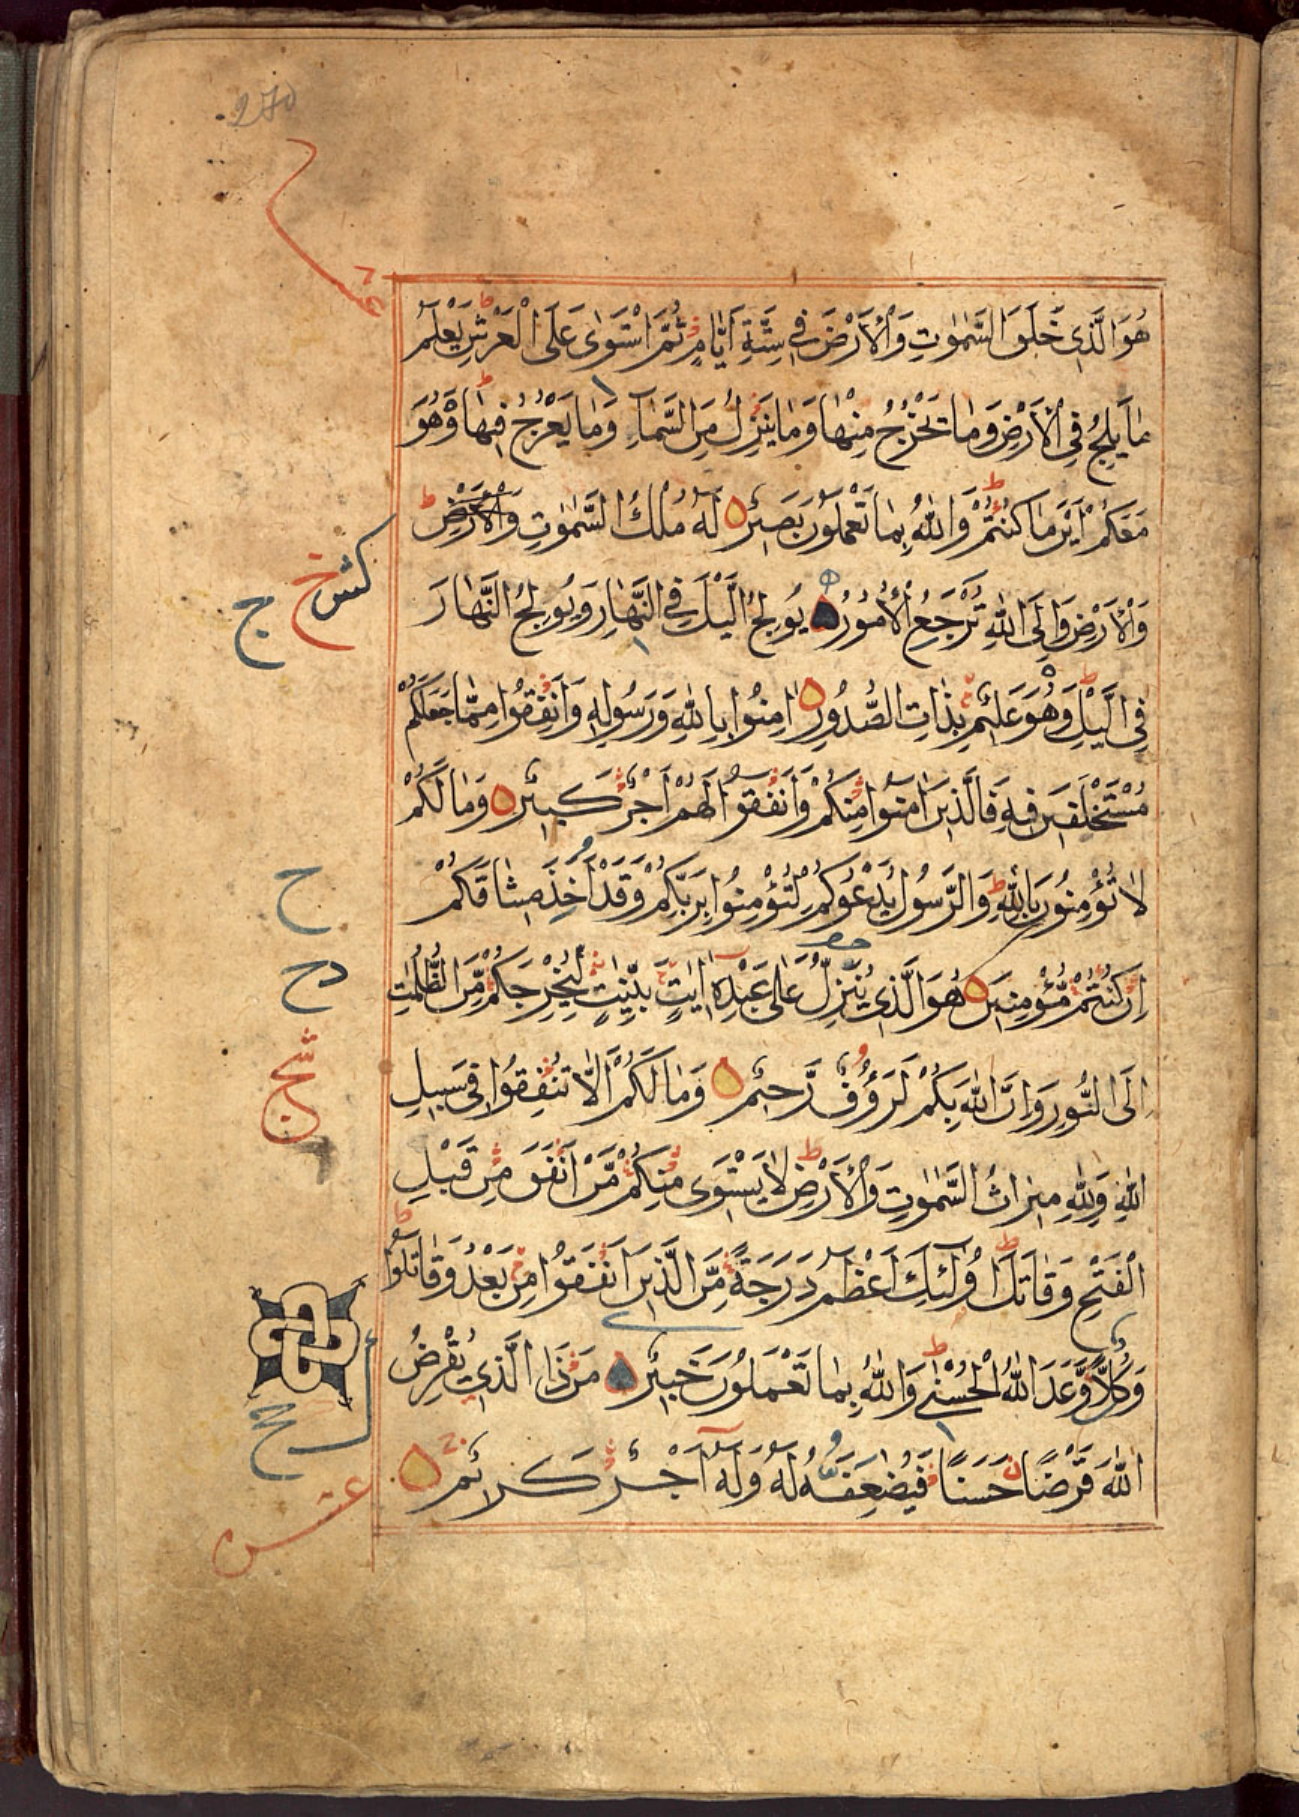 270
هُوَ الَّذِى خَلَقَ السَّمٰوٰتِ وَالْاَرْضَ فِى سِتَّةِ اَيَّامٍ ثُمَّ اسْتَوٰى عَلَى الْعَرْشِ يَعْلَمُ
مَا يَلِجُ فِى الْاَرْضِ وَمَا يَخْرُجُ مِنْهَا وَمَا يَنْزِلُ مِنَ السَّمَآءِ وَمَا يَعْرُجُ فِيْهَا وَهُوَ
مَعَكُمْ اَيْنَ مَا كُنْتُمْ وَاللّٰهُ بِمَا تَعْمَلُوْنَ بَصِيْرٌ لَهٗ مُلْكُ السَّمٰوٰتِ وَالْاَرْضِ
وَالْاَرْضِ وَاِلَى اللّٰهِ تُرْجَعُ الْاُمُوْرُ يُوْلِجُ الَّيْلَ فِى النَّهَارِ وَيُوْلِجُ النَّهَارَ
كش خ
ج
فِى الَّيْلِ وَهُوَ عَلِيْمٌ بِذَاتِ الصُّدُوْرِ اٰمِنُوْا بِاللّٰهِ وَرَسُوْلِهٖ وَاَنْفِقُوْا مِمَّا جَعَلَكُمْ
مُسْتَخْلَفِيْنَ فِيْهِ فَالَّذِيْنَ اٰمَنُوْا مِنْكُمْ وَاَنْفَقُوْا لَهُمْ اَجْرٌ كَبِيْرٌ وَمَا لَكُمْ
لَا تُؤْمِنُوْنَ بِاللّٰهِ وَالرَّسُوْلُ يَدْعُوْكُمْ لِتُؤْمِنُوْا بِرَبِّكُمْ وَقَدْ اَخَذَ مِيْثَاقَكُمْ
ح
اِنْ كُنْتُمْ مُّؤْمِنِيْنَ هُوَ الَّذِى يُنَزِّلُ عَلٰى عَبْدِهٖ اٰيٰتٍ بَيِّنٰتٍ لِّيُخْرِجَكُمْ مِّنَ الظُّلُمٰتِ
دح
اِلَى النُّوْرِ وَاِنَّ اللّٰهَ بِكُمْ لَرَؤُفٌ رَّحِيْمٌ وَمَا لَكُمْ اَلَّا تُنْفِقُوْا فِى سَبِيْلِ
اللّٰهِ وَلِلّٰهِ مِيْرَاثُ السَّمٰوٰتِ وَالْاَرْضِ لَا يَسْتَوِى مِنْكُمْ مَّنْ اَنْفَقَ مِنْ قَبْلِ
الْفَتْحِ وَقَاتَلَ اُولٰٓئِكَ اَعْظَمُ دَرَجَةً مِّنَ الَّذِيْنَ اَنْفَقُوْا مِنْ بَعْدُ وَقَاتَلُوْا
وَكُلًّا وَّعَدَ اللّٰهُ الْحُسْنٰى وَاللّٰهُ بِمَا تَعْمَلُوْنَ خَبِيْرٌ مَنْ ذَا الَّذِى يُقْرِضُ
اللّٰهَ قَرْضًا حَسَنًا فَيُضٰعِفَهٗ لَهٗ وَلَهٗ اَجْرٌ كَرِيْمٌ
عشر